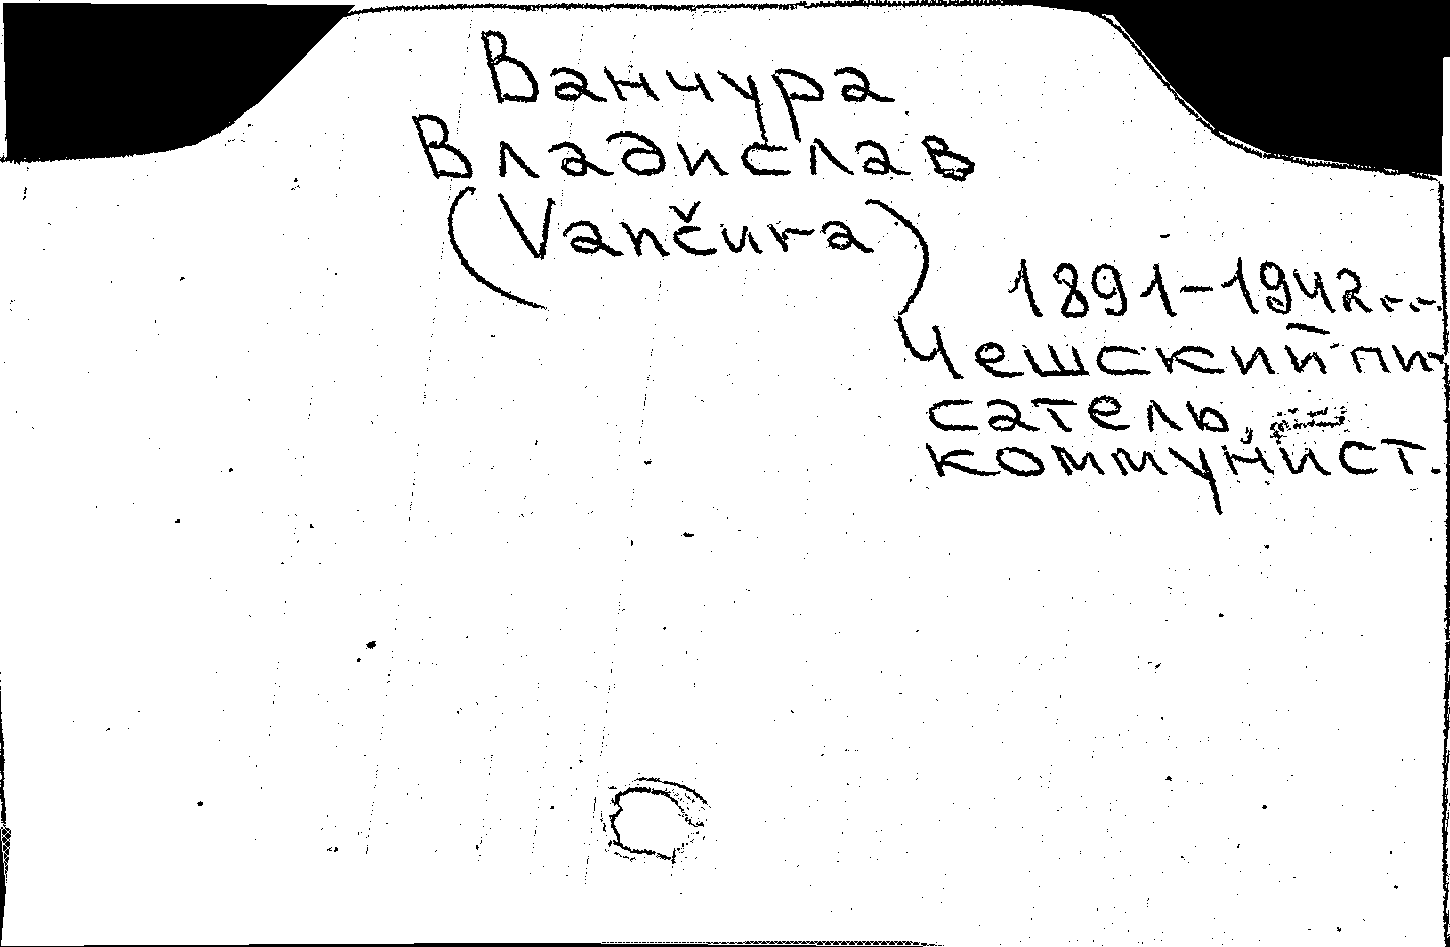 Ванчура
Владислав
(Vančura)
1891–1942 г.г.
Чешский пи-
сатель,
коммунист.